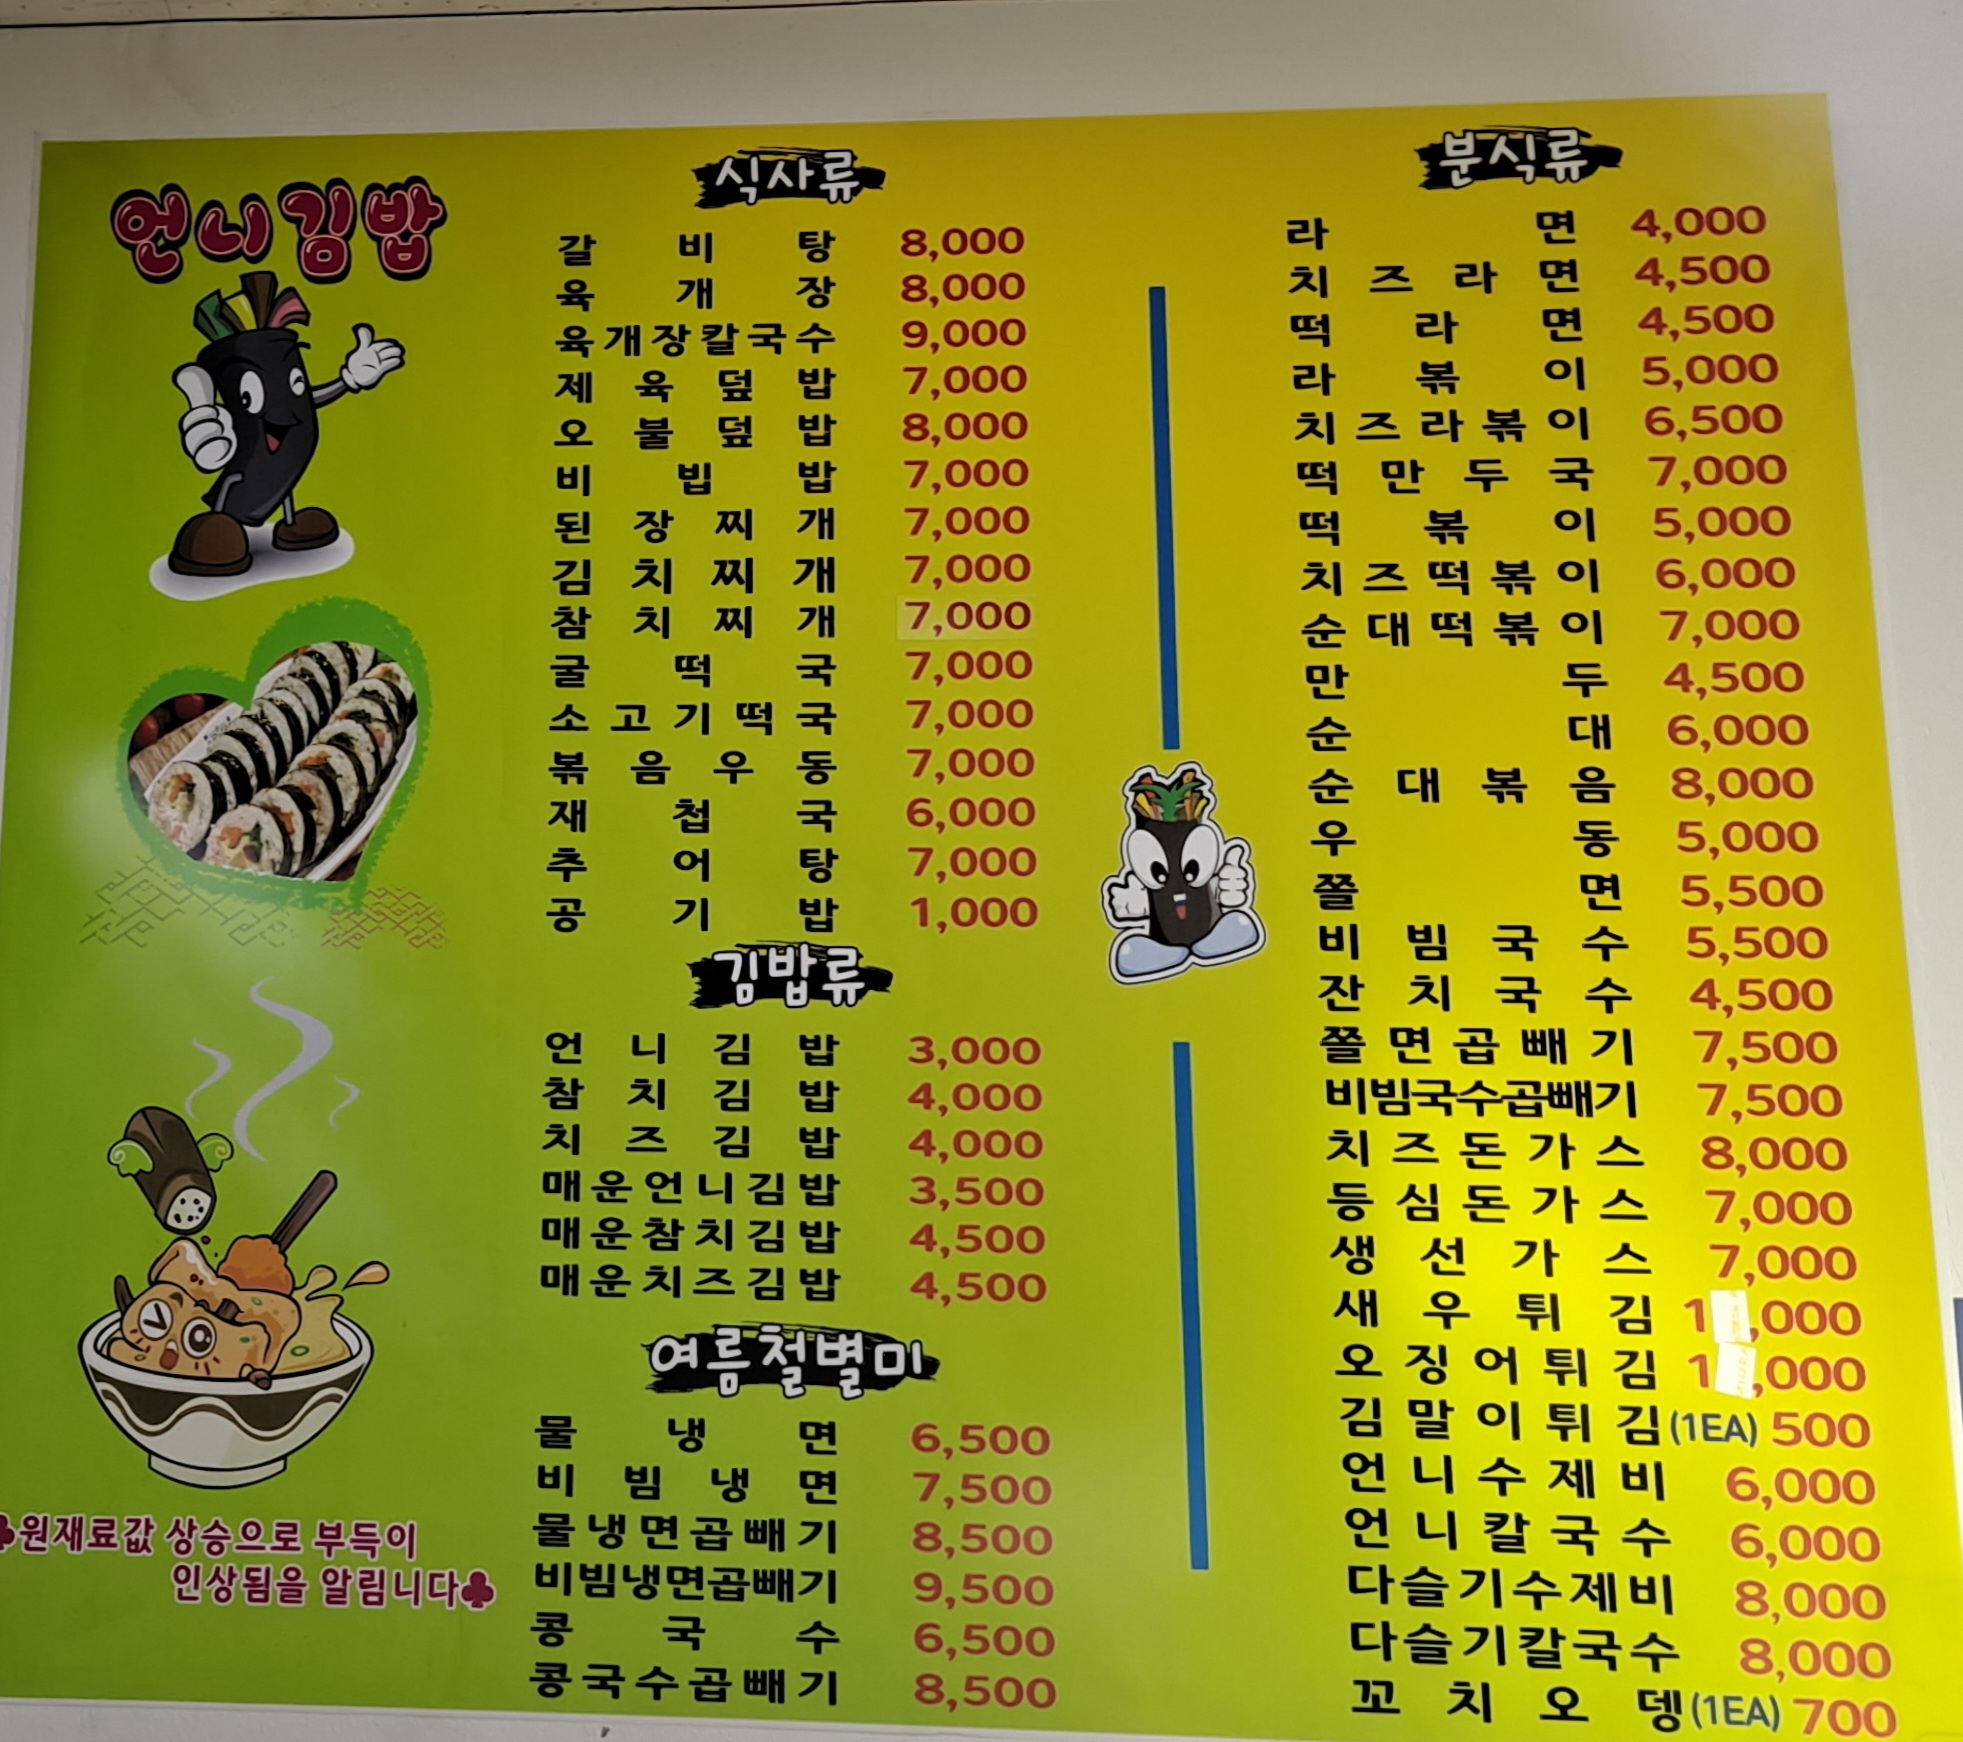 언니김밥
식사류
갈비탕 8,000
육개장 8,000
육개장칼국수 9,000
제육덮밥 7,000
오불덮밥 8,000
비빔밥 7,000
된장찌개 7,000
김치찌개 7,000
참치찌개 7,000
굴떡국 7,000
소고기떡국 7,000
볶음우동 7,000
재첩국 6,000
추어탕 7,000
공기밥 1,000
김밥류
언니김밥 3,000
참치김밥 4,000
치즈김밥 4,000
매운언니김밥 3,500
매운참치김밥 4,500
매운치즈김밥 4,500
여름철별미
물냉면 6,500
비빔냉면 7,500
물냉면곱빼기 8,500
비빔냉면곱빼기 9,500
콩국수 6,500
콩국수곱빼기 8,500
분식류
라면 4,000
치즈라면 4,500
떡라면 4,500
라볶이 5,000
치즈라볶이 6,500
떡만두국 7,000
떡볶이 5,000
치즈떡볶이 6,000
순대떡볶이 7,000
만두 4,500
순대 6,000
순대볶음 8,000
우동 5,000
쫄면 5,500
비빔국수 5,500
잔치국수 4,500
쫄면곱빼기 7,500
비빔국수곱빼기 7,500
치즈돈가스 8,000
등심돈가스 7,000
생선가스 7,000
새우튀김 1 ,000
오징어튀김 1 ,000
김말이튀김(1EA) 500
언니수제비 6,000
언니칼국수 6,000
다슬기수제비 8,000
다슬기칼국수 8,000
꼬치오뎅(1EA) 700
♣원재료값 상승으로 부득이
인상됨을 알림니다♣